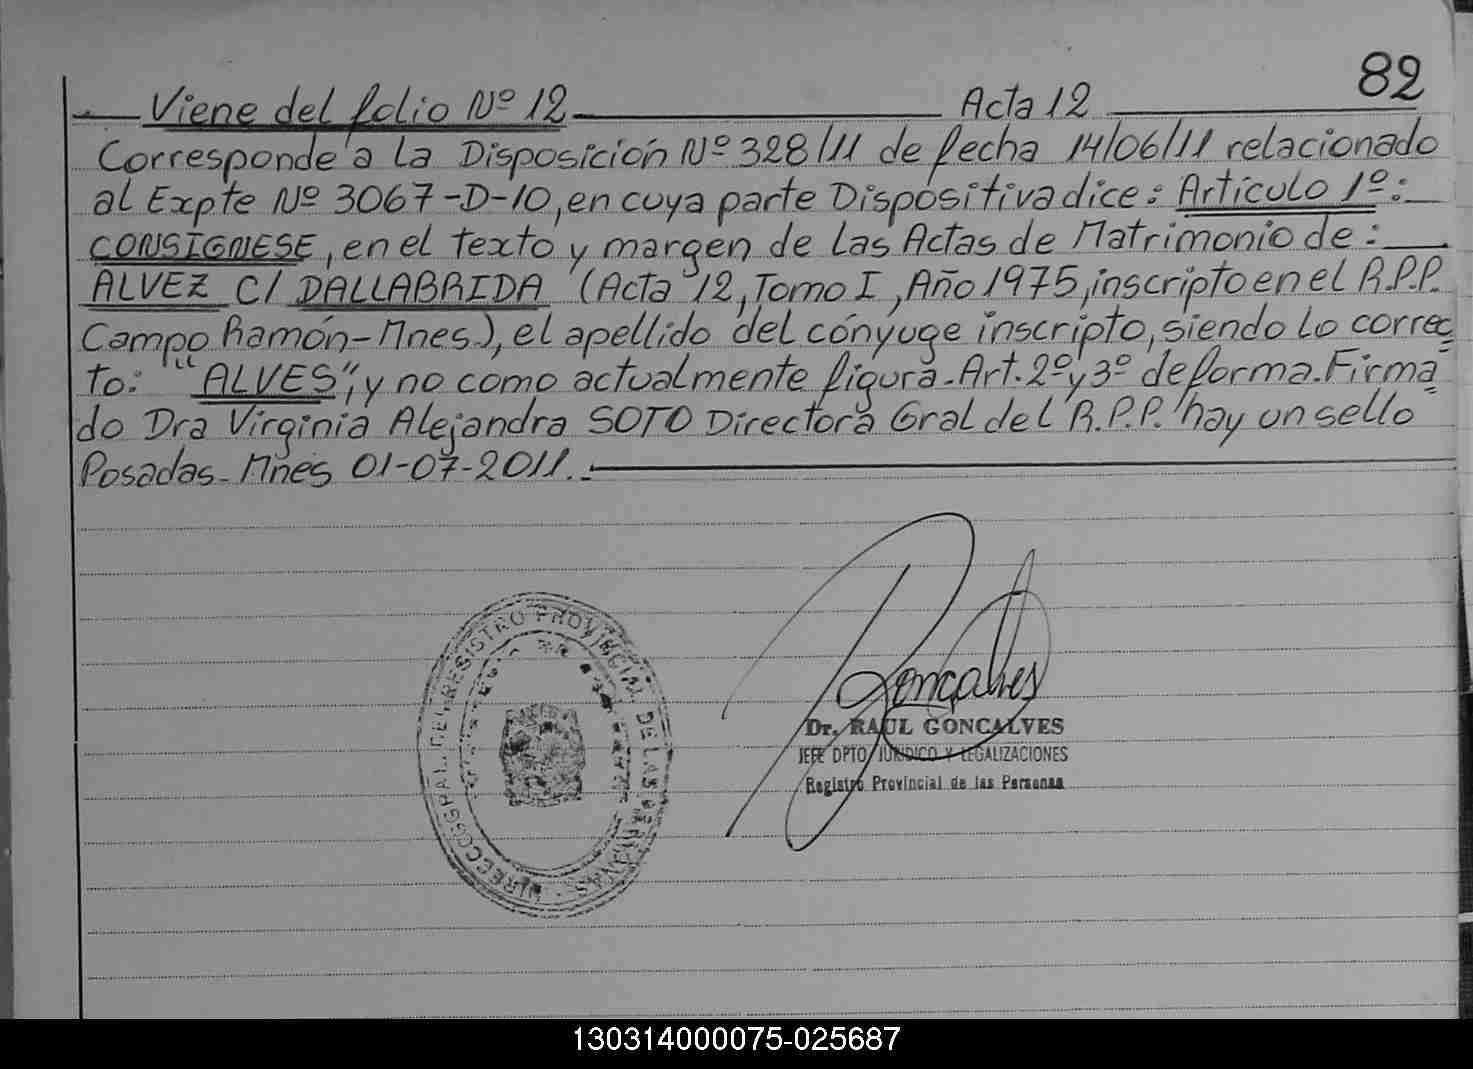 82
Viene del folio Nº 12 Acta 12
Corresponde a la Disposición Nº 328/11 de fecha 14/06/11 relacionado
al Expte Nº 3067-D-10, en cuya parte Dispositiva dice: Artículo 1º:
CONSIGNESE, en el texto y margen de las Actas de Matrimonio de:
ALVEZ C/ DALLABRIDA (Acta 12, Tomo I, Año 1975, inscripto en el R.P.P.
Campo Ramón-Mnes), el apellido del cónyuge inscripto, siendo lo correc
to: "ALVES", y no como actualmente figura. Art. 2º y 3º de forma. Firma
do Dra Virginia Alejandra SOTO Directora Gral del R.P.P. hay un sello
Posadas-Mnes 01-07-2011.
REGISTRO PROVINCIAL DE LAS PERSONAS
Goncalves
Dr. RAUL GONCALVES
JEFE DPTO JURIDICO Y LEGALIZACIONES
Registro Provincial de las Personas
130314000075-025687